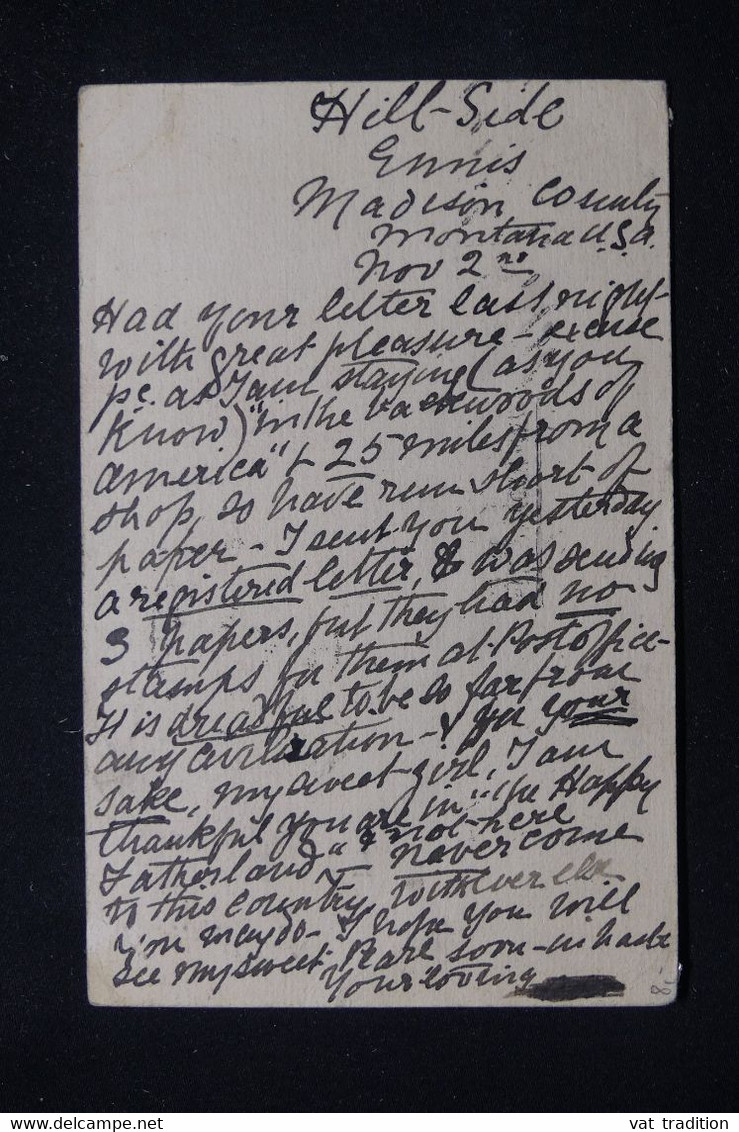 Hill-Side
Ennis
Madison County
Montana U.S.A.
Nov 2nd
Had your letter last night-
with great pleasure - excuse
pc. as I am staying (as you
know) "in the backwoods of
America" & 25 miles from a
shop, so have run short of
paper - I sent you yesterday
a registered letter, & was sending
3 papers, but they had no
stamps for them at Post Office-
It is dreadful to be so far from
any civilization - & for your
sake, my sweet girl, I am
thankful you are in "the Happy
Fatherland" & not here
- never come
to this country whatever else
you may do - I hope you will
see my sweet soon - in haste
Your loving
8,-
vat tradition
https://www.delcampe.net